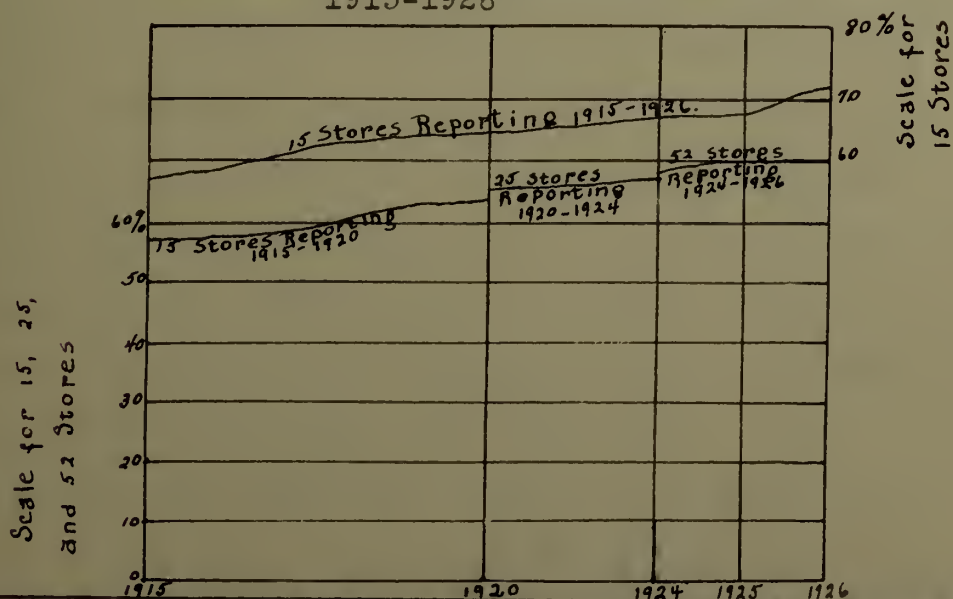 1915-1926
80%
Scale for
15 Stores
70
15 Stores Reporting 1915-1926.
60
52 stores
Reporting
1924-1926
25 Stores
Reporting
1920-1924
60%
15 Stores Reporting
1915-1920
50
40
30
20
10
0
Scale for 15, 25,
and 52 Stores
1915
1920
1924
1925
1926